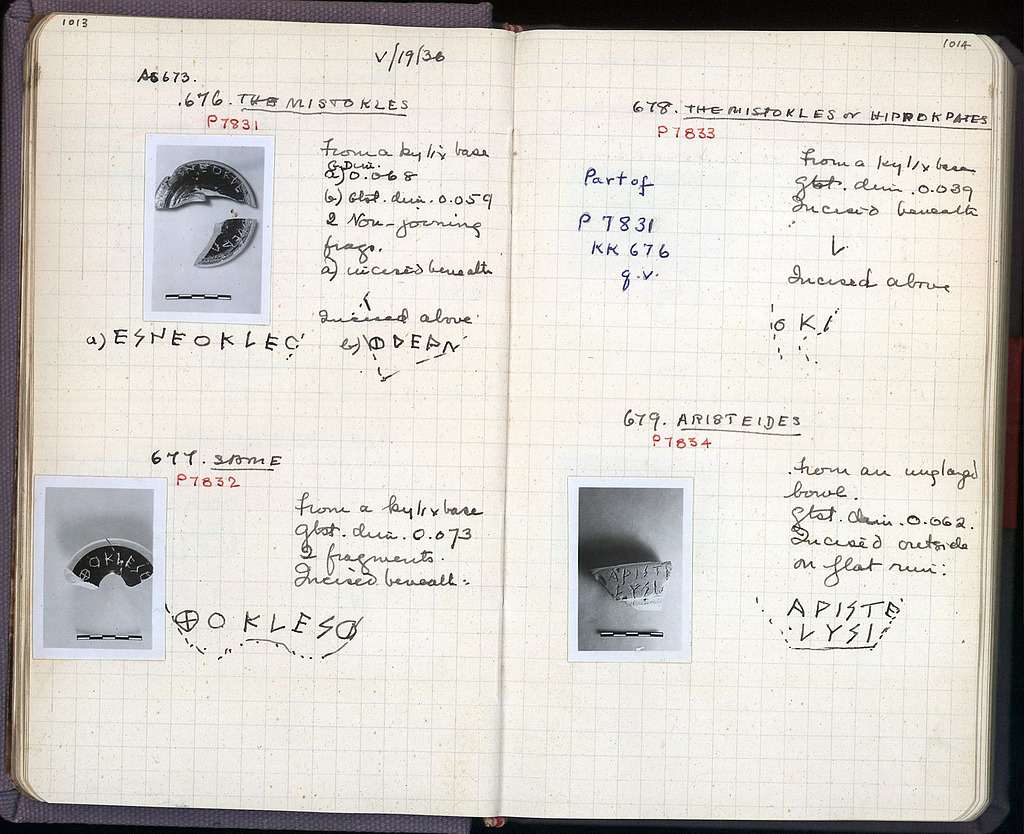 1013
V/19/36
AG673.
676. THEMISTOKLES
P7831
From a kylix base
G. Dim.
a) 0.068
b) Gtst. dim. 0.059
2 Non-joining
frags.
a) incised beneath
Incised above
a) ESNEOKLEC
b) ODEAN
677. SAME
P7832
From a kylix base
gtst. dim. 0.073
2 fragments.
Incised beneath:
⊕OKLESO
1014
678. THEMISTOKLES or HIPPOKRATES
P7833
Part of
P 7831
KK 676
q.v.
From a kylix base
Gtst. dim. 0.039
Incised beneath
Incised above
OKI
679. ARISTEIDES
P7834
From an unglazed
bowl.
Gtst. dim. 0.062.
Incised outside
on flat rim:
APISTE
LYSI